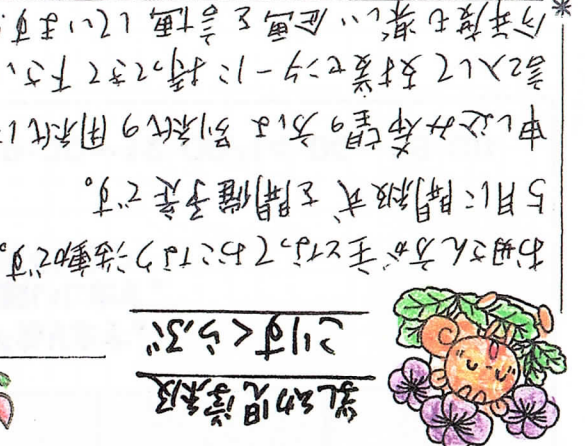 乳幼児学級
こりすくらぶ
お母さん方が主となっておこなう活動です。
5月に開級式を開催予定です。
申し込み希望の方は別紙の用紙に
記入して支援センターに持ってきて下さい
今年度も楽しい企画を計画しています!